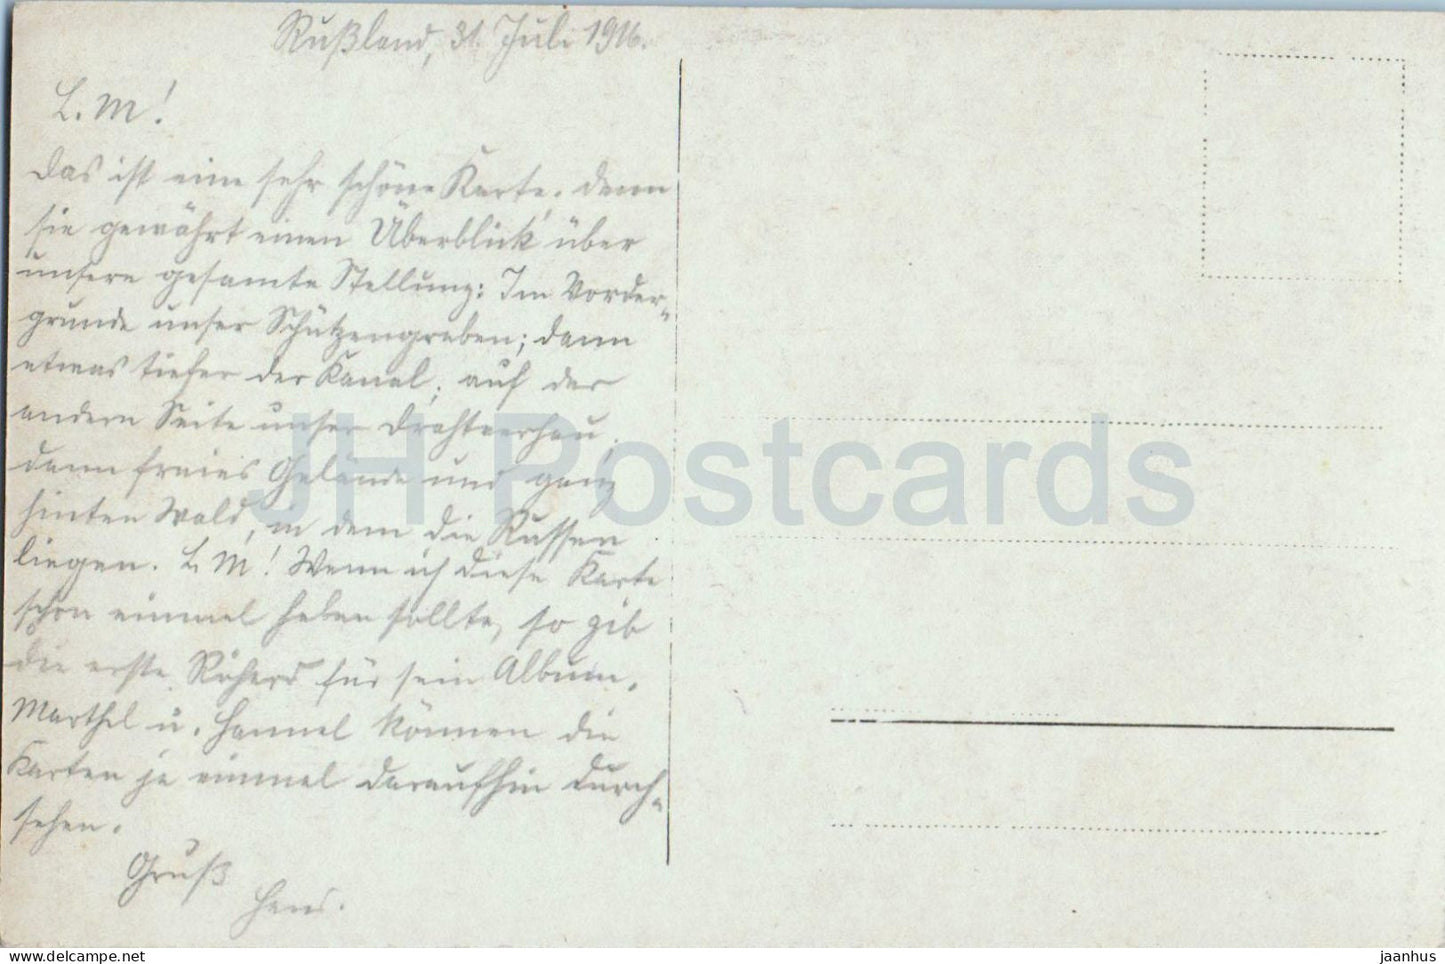 Rußland, 31. Juli 1916.
L. M!
Das ist eine sehr schöne Karte. denn
sie gewährt einen Überblick über
unsere gesamte Stellung: Im Vorder-
grunde unser Schützengraben; dann
etwas tiefer der Kanal; auf der
andern Seite unser Drahtverhau;
dann freies Gelände und ganz
hinten Wald, in dem die Russen
liegen. L. M! Wenn ich diese Karte
schon einmal haben sollte, so gib
die erste für sein Album.
Marthel u. Hannel können die
Karten ja einmal daraufhin durch-
sehen.
Gruß
Hans.
JH Postcards
www.delcampe.net
jaanhus